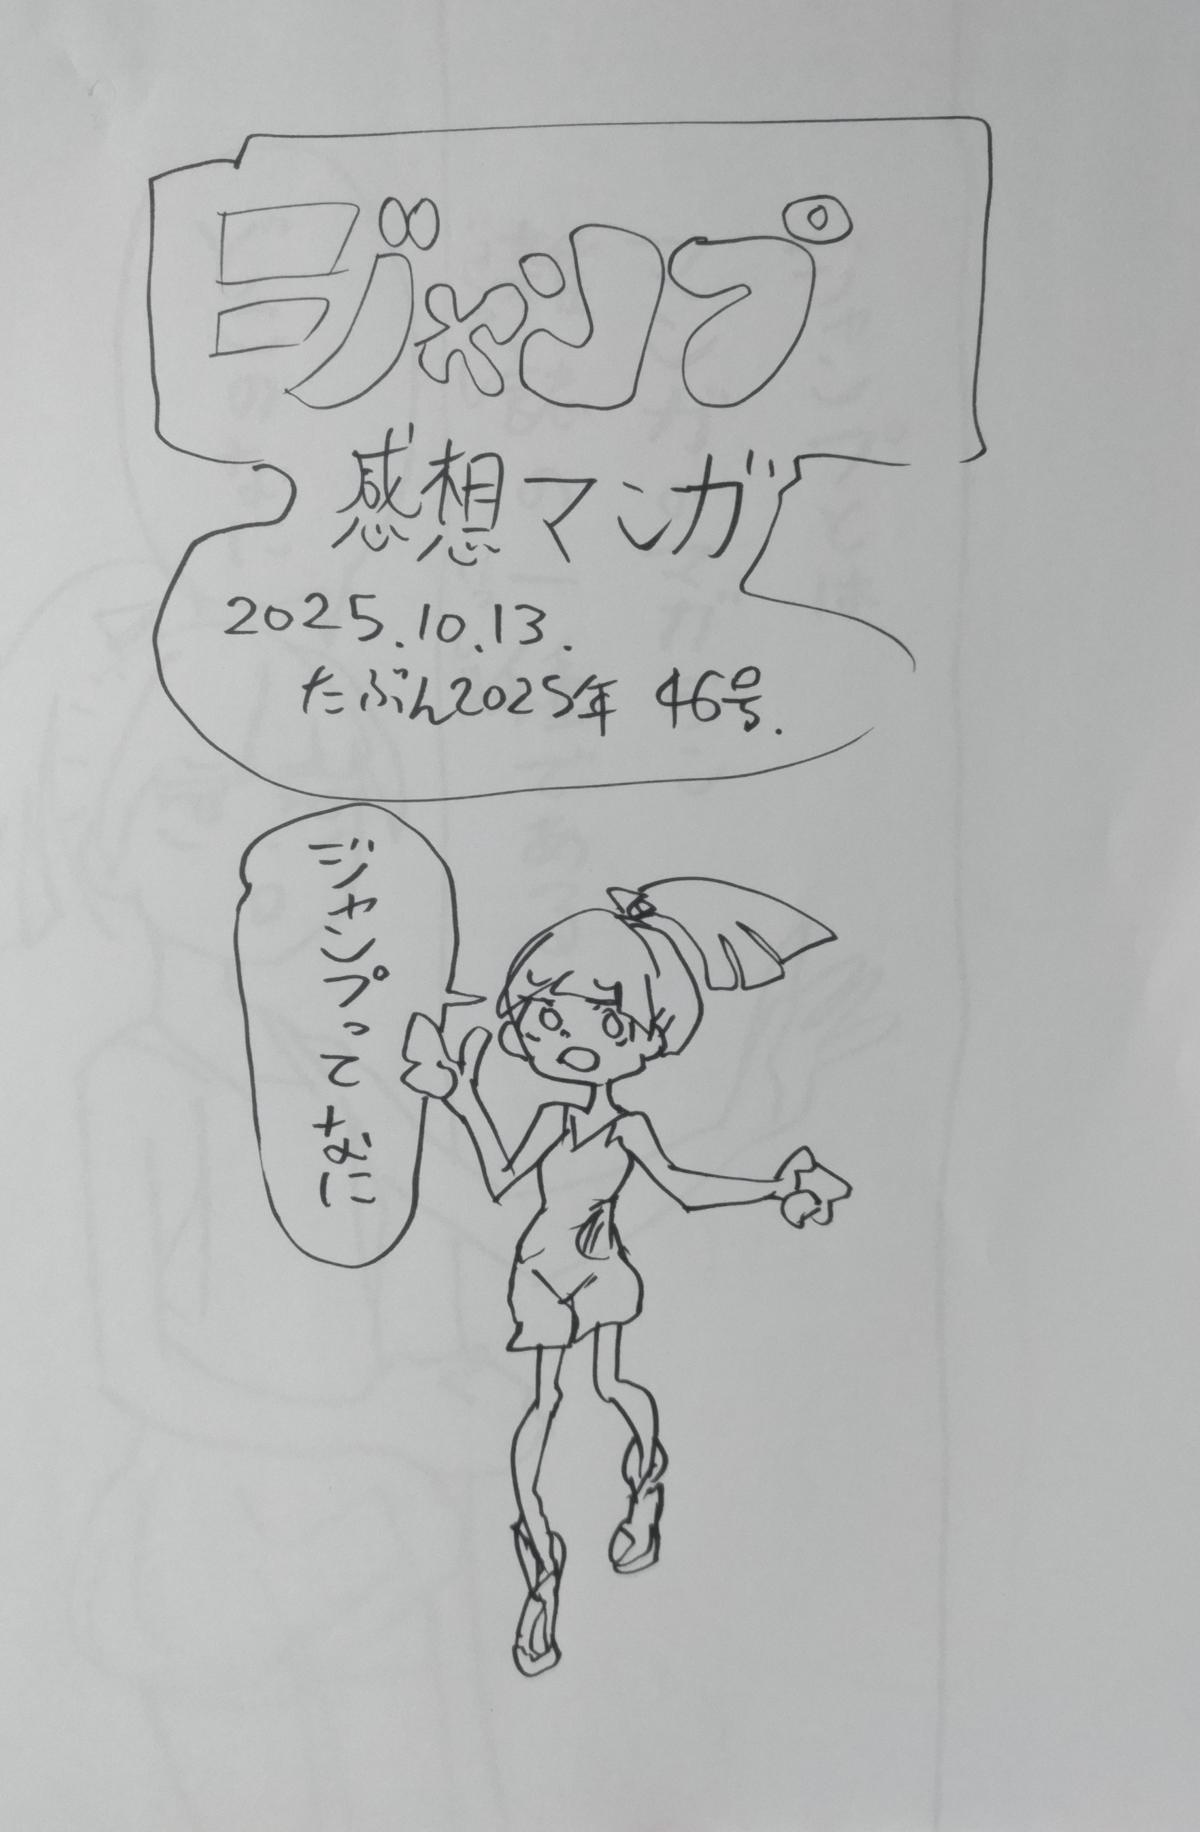 ジャンプ
感想マンガ
2025.10.13.
たぶん2025年 46号.
ジャンプってなに